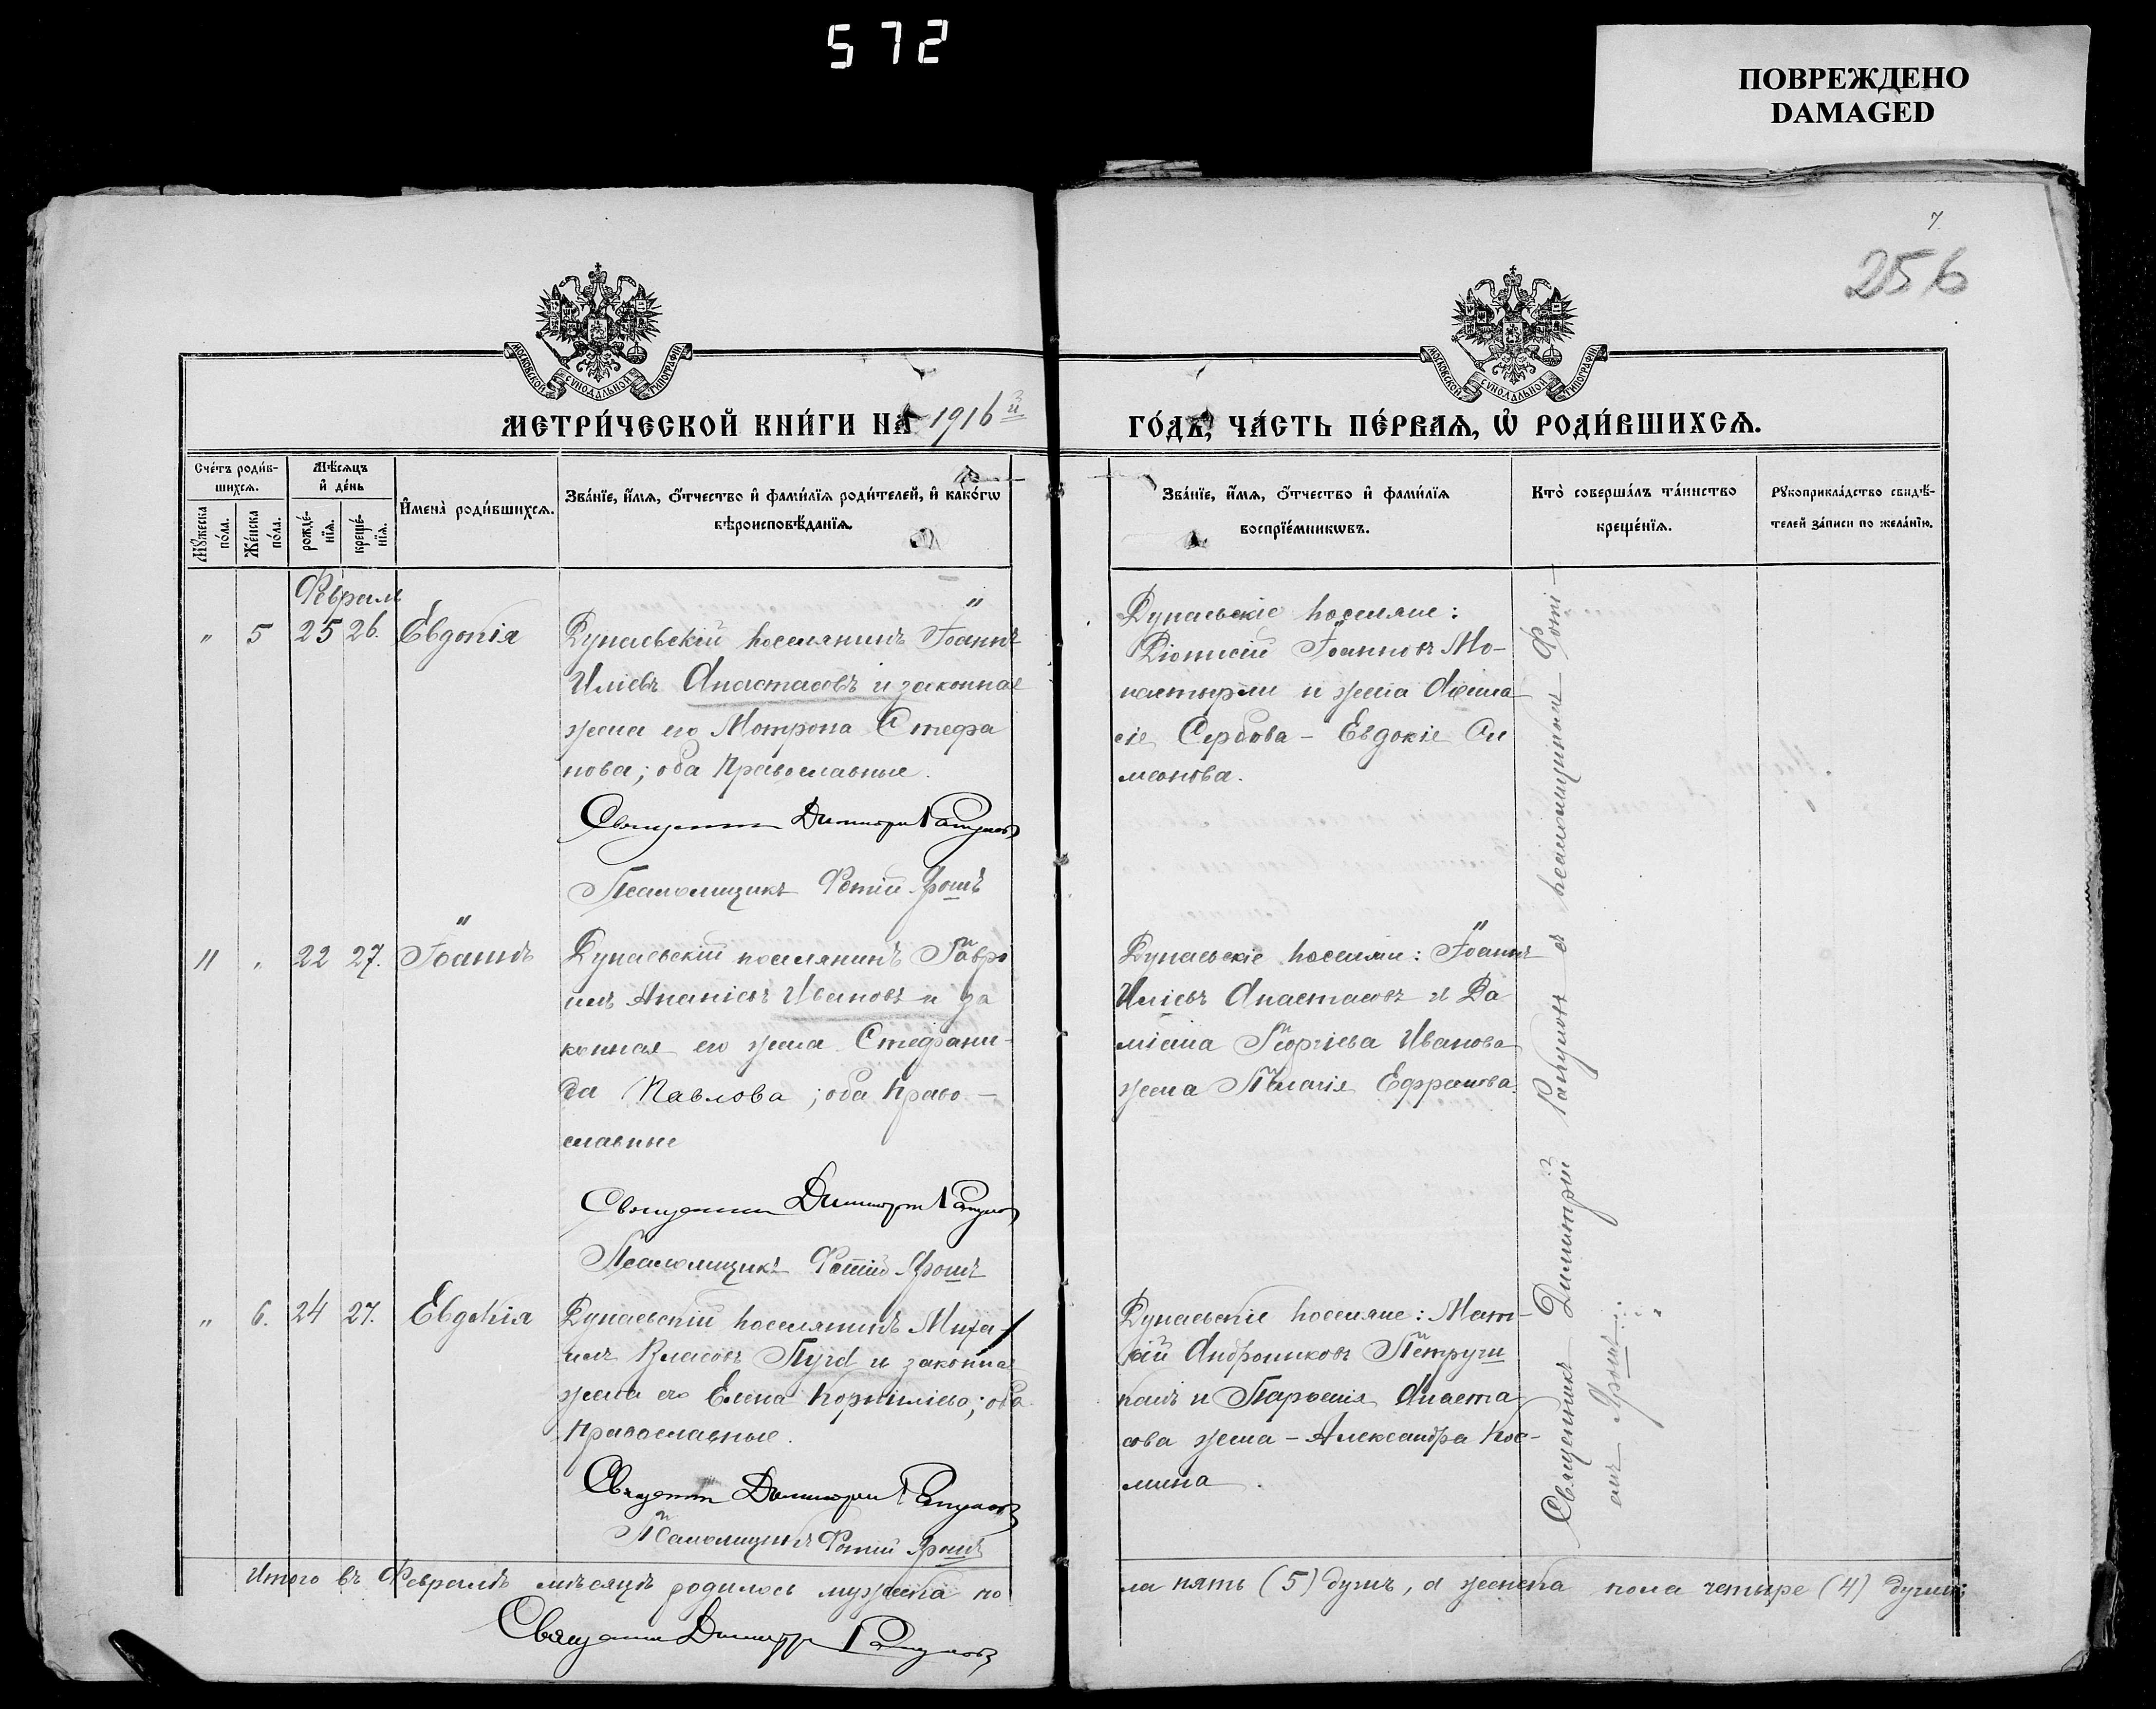 572
ПОВРЕЖДЕНО
DAMAGED
7.
256
МОСКОВСКОЙ СѴНОДАЛЬНОЙ ТИПОГРАФІИ
МОСКОВСКОЙ СѴНОДАЛЬНОЙ ТИПОГРАФІИ
МЕТРИ́ЧЕСКОЙ КНИ́ГИ НА 1916й
ГО́ДЪ, ЧА́СТЬ ПЕ́РВАѦ, Ѡ҆ РОДИ́ВШИХСѦ.
Сче́тъ роди́в-
шихсѧ.
Мѣ́сѧцъ
и҆ де́нь
Мꙋ́жеска
по́ла.
Же́нска
по́ла.
рожде́-
нїѧ.
креще́-
нїѧ.
И҆мена̀ роди́вшихсѧ.
Зва́нїе, и҆́мѧ, ѻ҆́тчество и҆ фами́лїѧ роди́телей, и҆ како́гѡ
вѣроисповѣ́данїѧ.
Зва́нїе, и҆́мѧ, ѻ҆́тчество и҆ фами́лїѧ
воспрїе́мникѡвъ.
Кто̀ соверша́лъ та́инство
креще́нїѧ.
Рꙋкоприкла́дство свидѣ́-
телей за́писи по жела́нїю.
Февраль
" 5 25 26. Евдокія
Дунаевскій поселянинъ Іоаннъ
Иліевъ Анастасовъ и законная
жена его Мотрона Стефа
нова; оба православные.
Священникъ Димитрій Рацулов
Псаломщикъ Фотій Ярошъ
Дунаевскіе поселяне:
Діонисій Іоанновъ Мо-
настырли и жена Афана
сія Сербова - Евдокія Си
меонова.
11 " 22 27. Іоаннъ
Дунаевскій поселянинъ Гаврі
илъ Ананіевъ Ивановъ и за
конная его жена Стефани-
да Павлова; оба право-
славные
Священникъ Димитрій Рацулов
Псаломщикъ Фотій Ярошъ
Дунаевскіе поселяне: Іоаннъ
Иліевъ Анастасовъ и Да
міана Георгіева Иванова
жена Пелагія Ефремова.
" 6. 24 27. Евдокія
Дунаевскій поселянинъ Миха-
илъ Власовъ Пугa и законная
жена его Елена Корнилiева; оба
православные.
Священникъ Димитрій Рацулов
Псаломщикъ Фотій Ярошъ
Дунаевскіе поселяне: Мат-
фій Андрониковъ Петруш
канъ и Парѳенія Анаста
сова жена - Александра Кос-
мина.
Священникъ Димитрій Рацуловъ съ псаломщикомъ Фоті-
емъ Ярошъ.
Итого въ Февралѣ мѣсяцѣ родилось мужеска по
ла пять (5) душъ, а женска пола четыре (4) души:
Священникъ Димитрій Рацулов